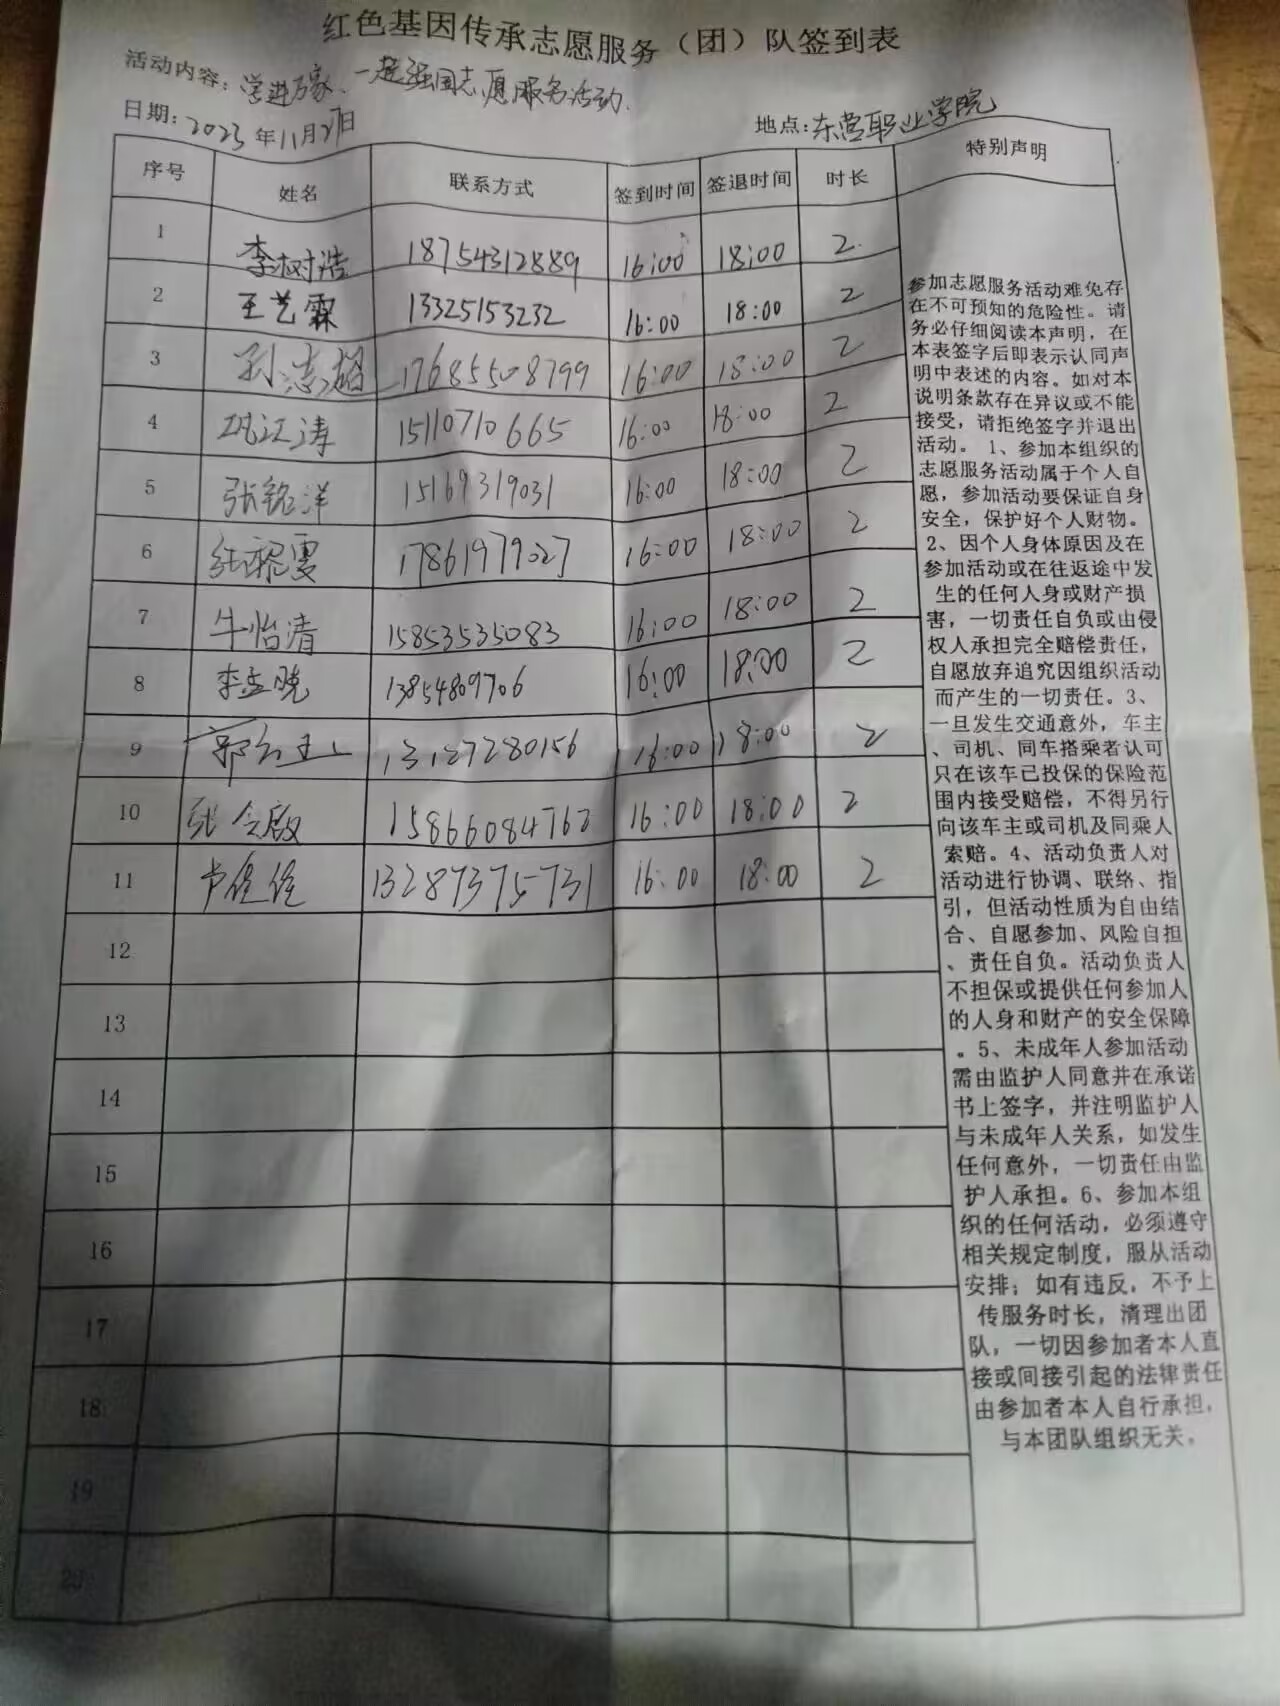 红色基因传承志愿服务（团）队签到表
活动内容：学进万家、一起强国志愿服务活动.
日期：2023年11月21日 地点：东营职业学院
序号 姓名 联系方式 签到时间 签退时间 时长 特别声明
1 李树浩 18754312889 16:00 18:00 2
2 王艺霖 13325153232 16:00 18:00 2
3 孙志超 17685508799 16:00 18:00 2
4 巩江涛 15110710665 16:00 18:00 2
5 张铭洋 15169319031 16:00 18:00 2
6 17861979027 16:00 18:00 2
7 牛怡清 15853535083 16:00 18:00 2
8 李孟晓 13854809706 16:00 18:00 2
9 郭 13127280156 16:00 18:00 2
10 张会啟 15866084762 16:00 18:00 2
11 13287375731 16:00 18:00 2
12
13
14
15
16
17
18
19
20
参加志愿服务活动难免存
在不可预知的危险性。请
务必仔细阅读本声明，在
本表签字后即表示认同声
明中表述的内容。如对本
说明条款存在异议或不能
接受，请拒绝签字并退出
活动。1、参加本组织的
志愿服务活动属于个人自
愿，参加活动要保证自身
安全，保护好个人财物。
2、因个人身体原因及在
参加活动或在往返途中发
生的任何人身或财产损
害，一切责任自负或由侵
权人承担完全赔偿责任，
自愿放弃追究因组织活动
而产生的一切责任。3、
一旦发生交通意外，车主
、司机、同车搭乘者认可
只在该车已投保的保险范
围内接受赔偿，不得另行
向该车主或司机及同乘人
索赔。4、活动负责人对
活动进行协调、联络、指
引，但活动性质为自由结
合、自愿参加、风险自担
、责任自负。活动负责人
不担保或提供任何参加人
的人身和财产的安全保障
。5、未成年人参加活动
需由监护人同意并在承诺
书上签字，并注明监护人
与未成年人关系，如发生
任何意外，一切责任由监
护人承担。6、参加本组
织的任何活动，必须遵守
相关规定制度，服从活动
安排；如有违反，不予上
传服务时长，清理出团
队，一切因参加者本人直
接或间接引起的法律责任
由参加者本人自行承担，
与本团队组织无关。